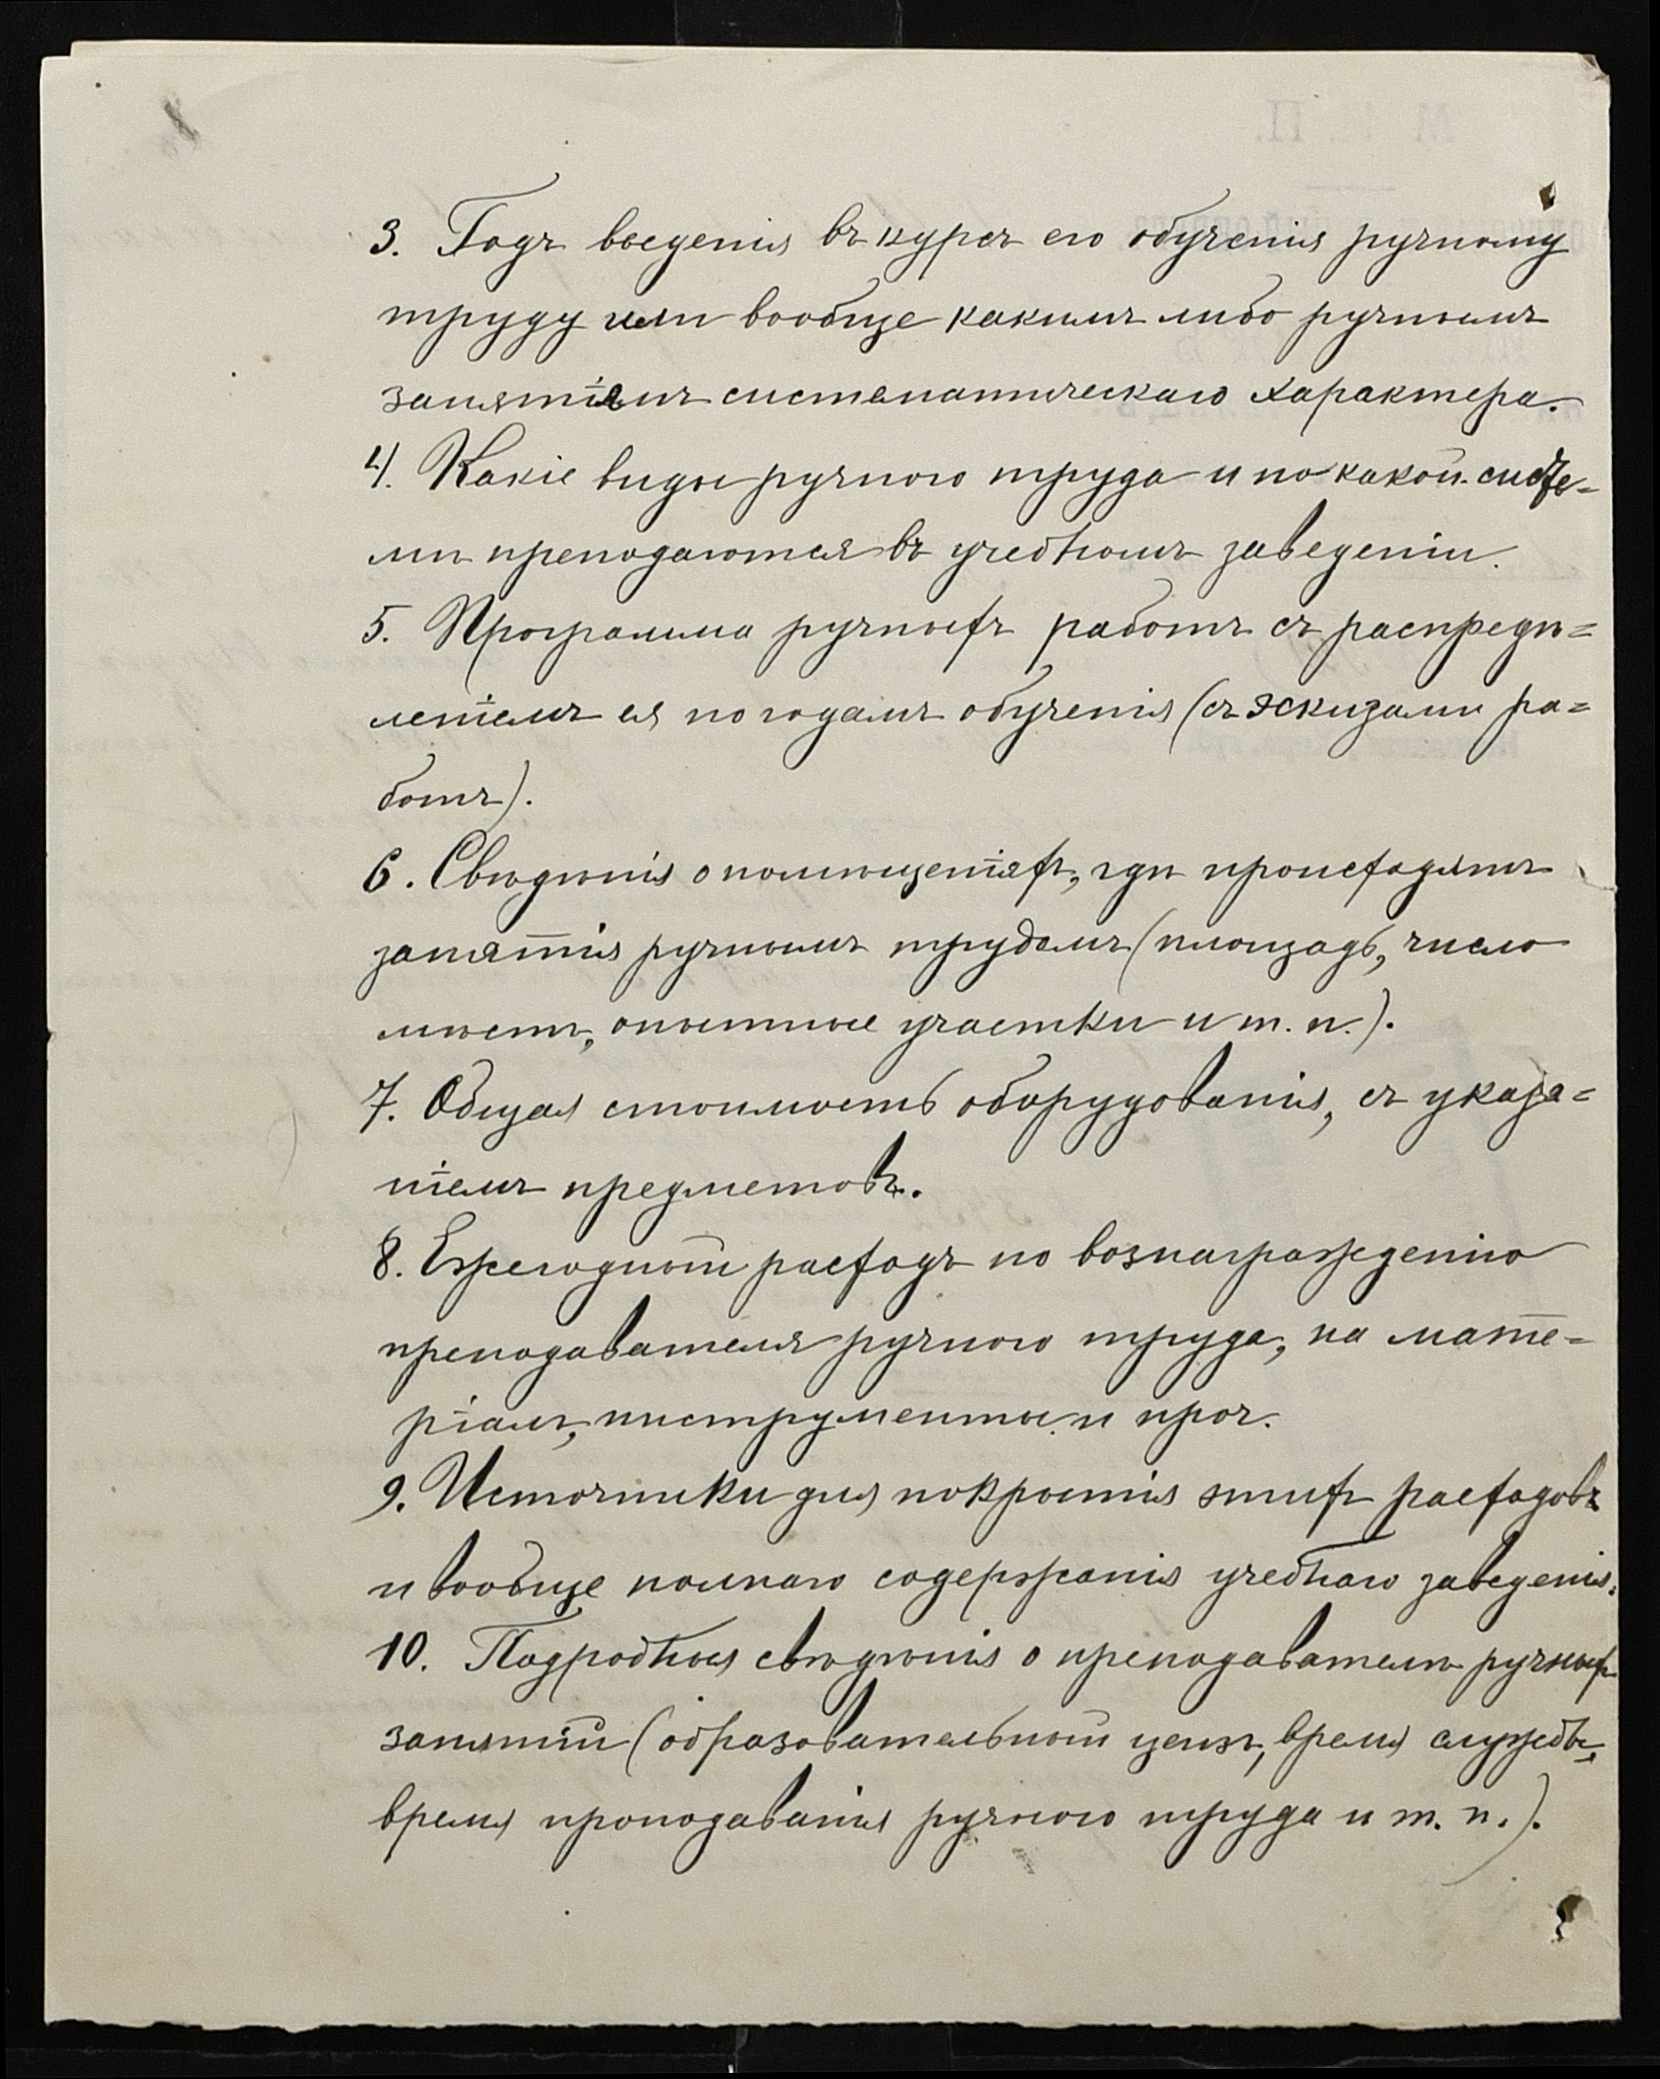 3. Годъ введенія въ курсъ его обученія ручному
труду или вообще какимъ либо ручнымъ
занятіямъ систематическаго характера.
4. Какіе виды ручного труда и по какой систе-
мѣ преподаются въ учебномъ заведеніи.
5. Программа ручныхъ работъ съ распредѣ=
леніемъ ея по годамъ обученія (съ эскизами ра=
ботъ).
6. Свѣдѣнія о помѣщеніяхъ, гдѣ происходятъ
занятія ручнымъ трудомъ (площадь, число
мѣстъ, опытные участки и т. п.).
7. Общая стоимость оборудованія, съ указа=
ніемъ предметовъ.
8. Ежегодный расходъ по вознагражденію
преподавателя ручного труда, на мате=
ріалъ, инструменты и проч.
9. Источники для покрытія этихъ расходовъ
и вообще полнаго содержанія учебнаго заведенія.
10. Подробныя свѣдѣнія о преподавателѣ ручныхъ
занятій (образовательный цензъ, время службы,
время проподаванія ручного труда и т. п.).